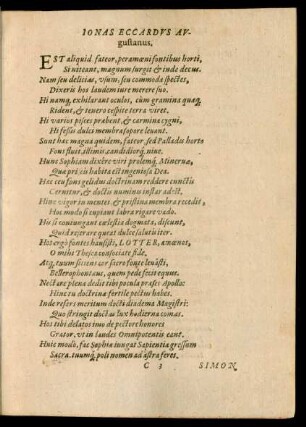 IONAS ECCARDVS AV-
gustanus.
EST aliquid fateor, peramœni fontibus horti,
Si niteant, magnum surgit & inde decus.
Nam seu delicias, vsum, seu commoda spectes,
Dixeris hos laudem iure merere suo.
Hi namq; exhilarant oculos, cùm gramina quæq;
Rident, & tenero cespite terra viret.
Hi varios pisces præbent, & carmina cygni,
Hi fessis dulci membra sopore leuant.
Sunt hæc magna quidem, fateor, sed Palladis horto
Fons fluit,
Hunc Sophiam dixêre viri prolemq; Mineruæ,
Quæ prisis habita est ingeniosa Dea.
Hoc ceu fons gelidus doctrinam reddere cunctis
Cernitur, & doctis numina instar adest.
Hinc vigor in mentes & pristina membra redit,
Hos modò si cupiant labra rigare vado.
Hi si coniungant cælestia dogmata, discunt,
Quid reserare queat dulce salutis iter.
Hos ergò fontes hausisti, LOTTER, amœnos,
O mihi Theseâ consociate fide.
Atq; tuum sitiens cor sacro fonte leuâsti,
Bellerophontæus, quem pede fixit equus.
Nectare plena dedit tibi pocula præses Apollo:
Hinc tu doctrinæ fertile pectus habes.
Inde refers meritum docti diadema Magistri:
Quo stringit doctas lux hodierna comas.
Hos tibi delatos imo de pectore honores
Grator, vt in laudes Omnipotentis eant.
Huic modò, fac Sophiæ iungat Sapientia gressum
Sacra. tuumq; poli nomen ad astra feres.
C 3 SIMON